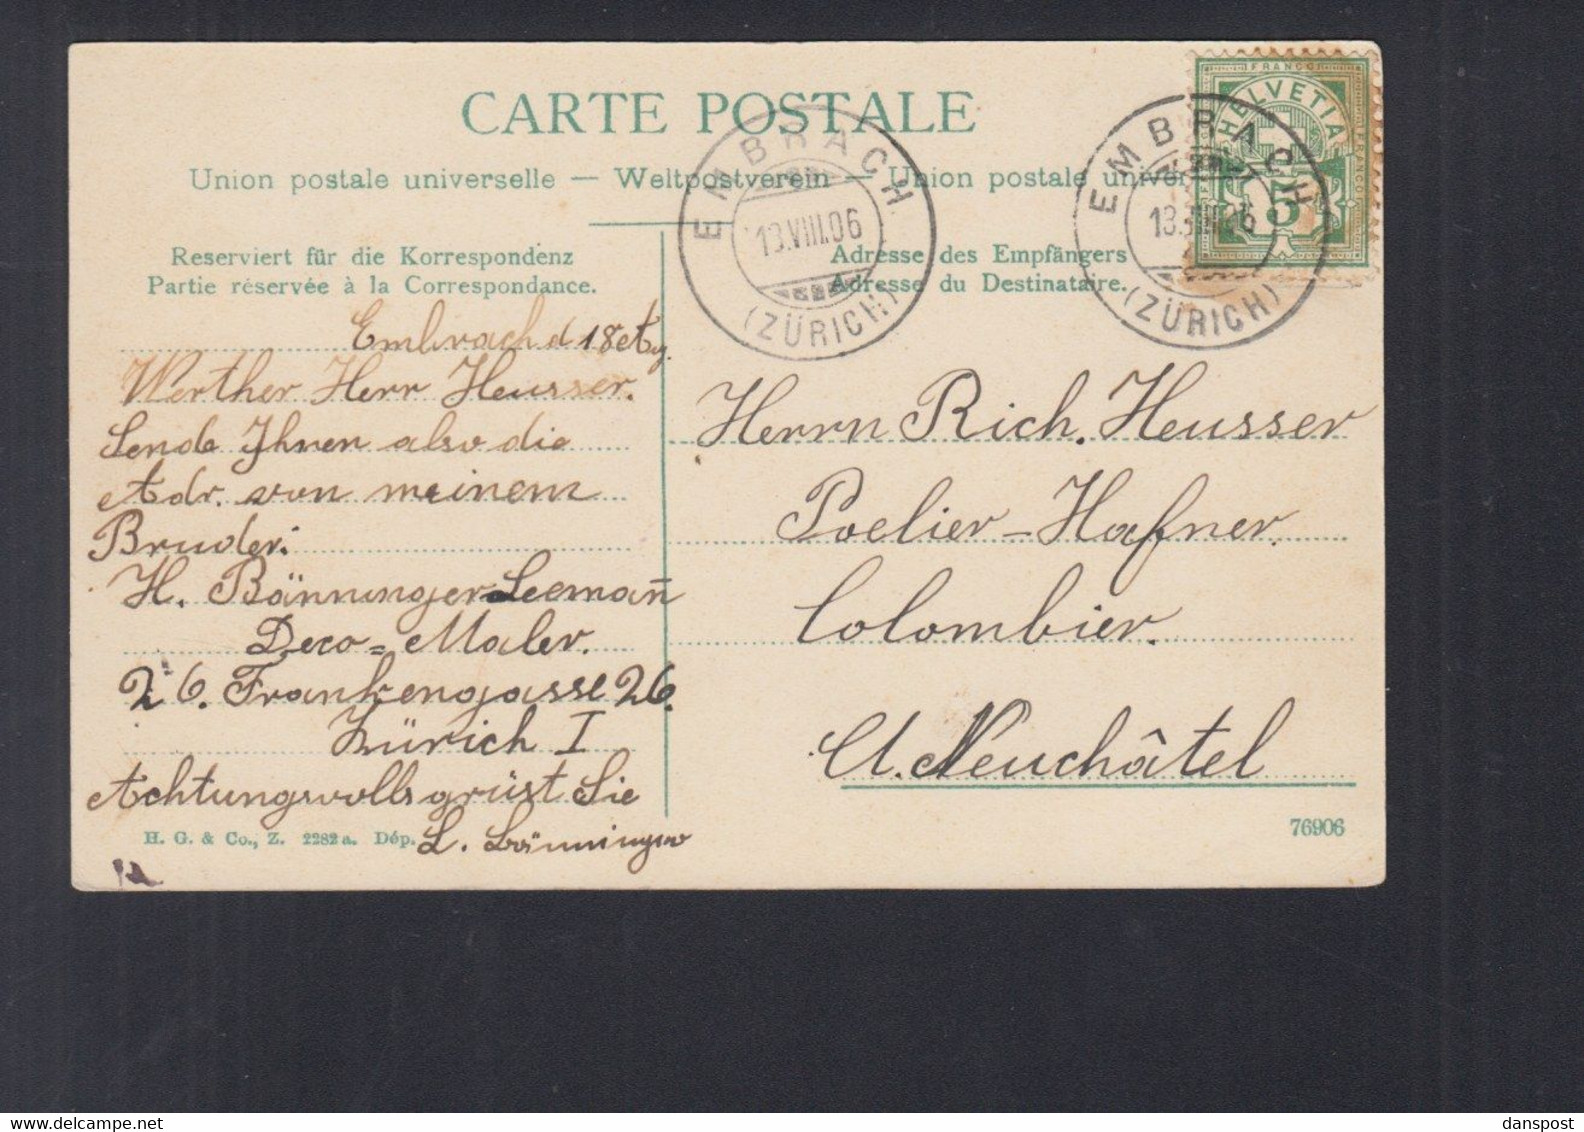 CARTE POSTALE
Union postale universelle — Weltpostverein — Union postale univer
Reserviert für die Korrespondenz
Partie réservée à la Correspondance.
Adresse des Empfängers
Adresse du Destinataire.
EMBRACH
13.VIII.06
(ZÜRICH)
EMBRACH
13.VIII.06
(ZÜRICH)
FRANCO
HELVETIA
FRANCO
5
Embrach d
Werther Herr Heusser.
Sende Ihnen also die
Adr. von meinem
Bruder.
H. Bänninger-Leemañ
Deco=Maler.
26. Frankengasse 26.
Zürich I
Achtungsvolls grüst Sie
L. Bänninger
Herrn Rich. Heusser
Poelier-Hafner.
Colombier.
Ct. Neuchâtel
H. G. & Co., Z. 2282 a. Dép.
76906
danspost